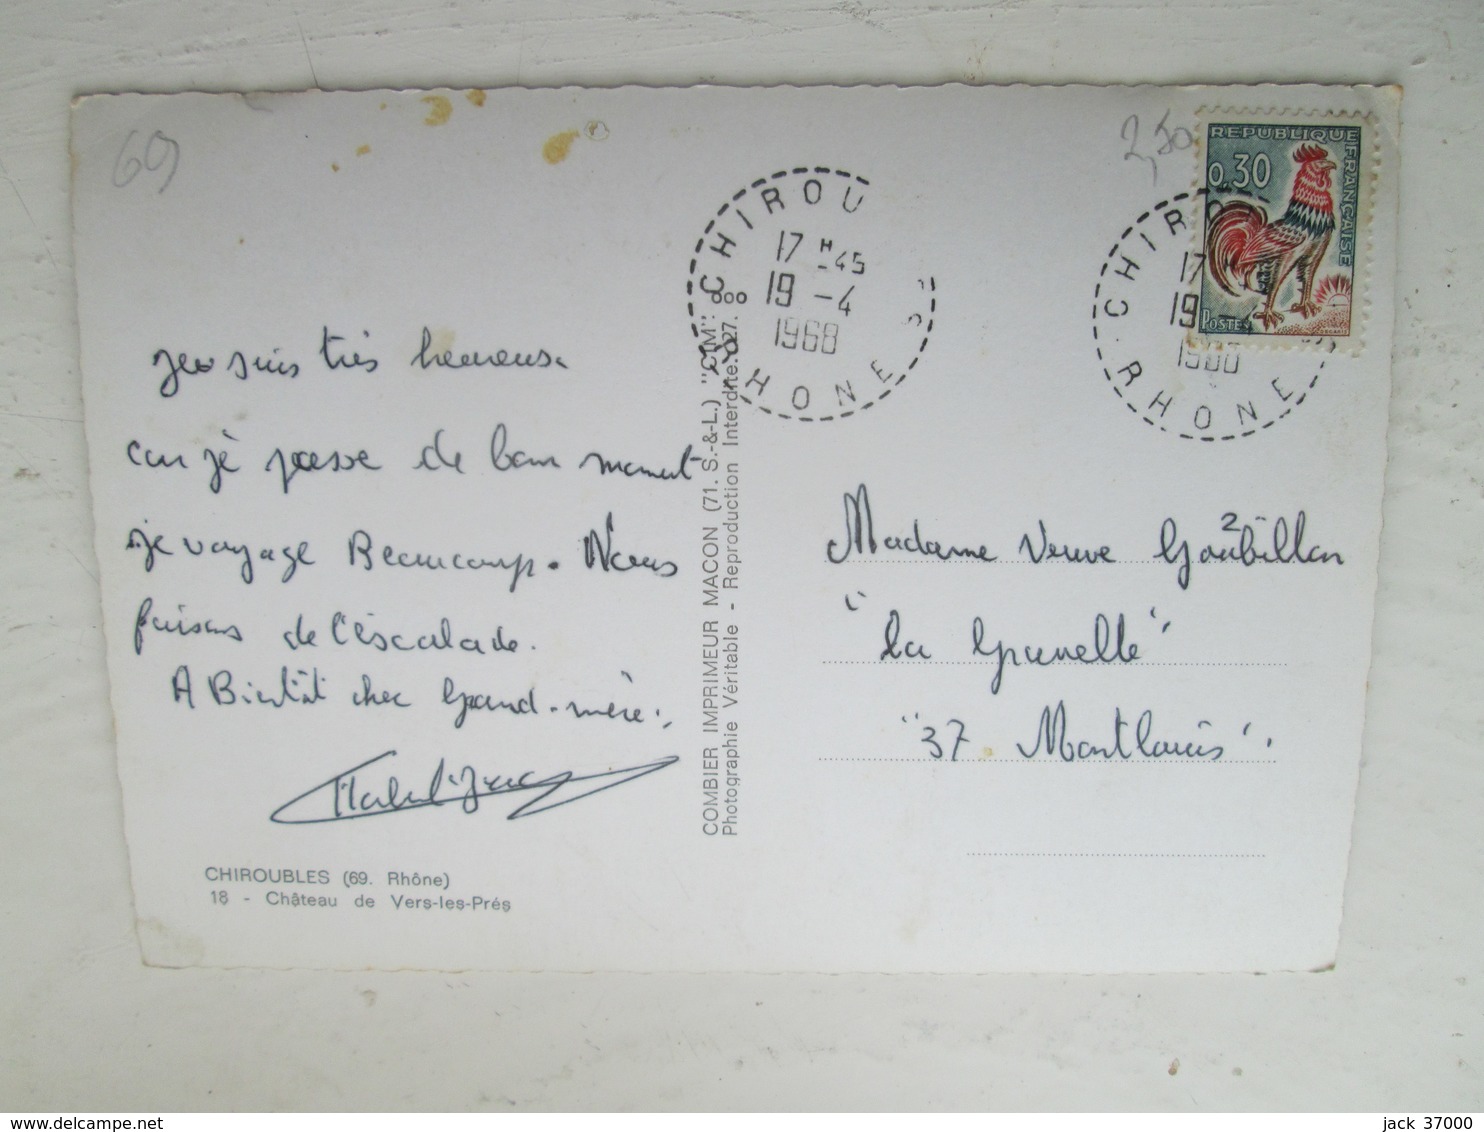 69
2,50
REPUBLIQUE FRANÇAISE
0,30
POSTES
CHIROU S
17 H -45
19 -4
1968
RHONE
CHIRO
17 H
19 -4
1968
RHONE
je suis très heureuse
car jè passe de bon moment
je voyage Beaucoup. Nous
faisons de l'éscalade.
A Bientôt cher Grand-mère.
CHIROUBLES (69. Rhône)
18 - Château de Vers-les-Prés
COMBIER IMPRIMEUR MACON (71. S.-&-L.) "CIM"
Photographie Véritable - Reproduction Interdite.
Madame Veuve Goubillon
"la Grunelle"
"37. Montlouis".
jack 37000